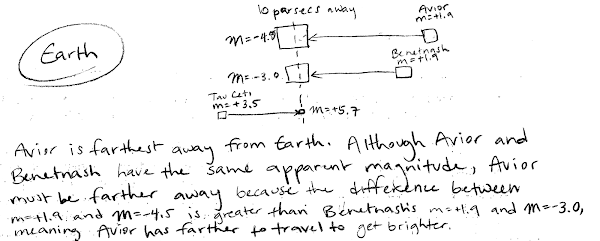 10 parsecs away
Avior
m=+1.9
m=-4.5
Earth
Benetnash
m=+1.9
m=-3.0
Tau Ceti
m=+3.5
m=+5.7
Avior is farthest away from Earth. Although Avior and
Benetnash have the same apparent magnitude, Avior
must be farther away because the difference between
m=+1.9 and m=-4.5 is greater than Benetnash's m=+1.9 and m=-3.0,
meaning Avior has farther to travel to get brighter.